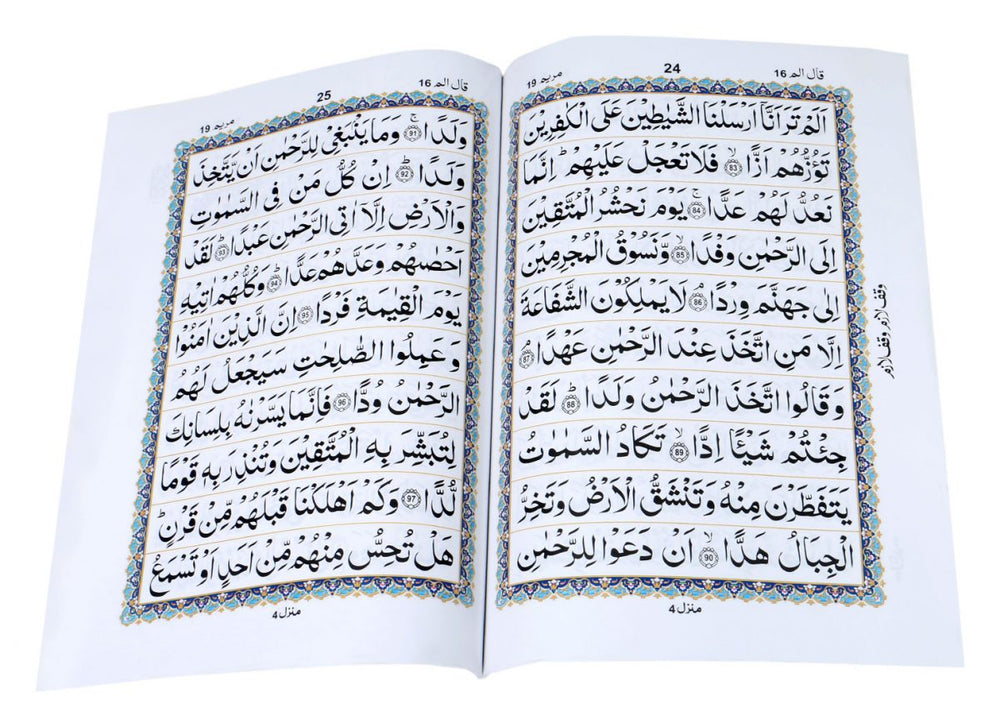 قال الم 16
24
مريم 19
اَلَمْ تَرَ اَنَّاۤ اَرْسَلْنَا الشَّيٰطِيْنَ عَلَى الْكٰفِرِيْنَ
تَؤُزُّهُمْ اَزًّا ۙ 83 فَلَا تَعْجَلْ عَلَيْهِمْ ؕ اِنَّمَا
نَعُدُّ لَهُمْ عَدًّا ۚ 84 يَوْمَ نَحْشُرُ الْمُتَّقِيْنَ
اِلَى الرَّحْمٰنِ وَفْدًا ۙ 85 وَّنَسُوْقُ الْمُجْرِمِيْنَ
اِلٰى جَهَنَّمَ وِرْدًا ۘ 86 لَا يَمْلِكُوْنَ الشَّفَاعَةَ
اِلَّا مَنِ اتَّخَذَ عِنْدَ الرَّحْمٰنِ عَهْدًا ۘ 87
وَقَالُوا اتَّخَذَ الرَّحْمٰنُ وَلَدًا ؕ 88 لَقَدْ
جِئْتُمْ شَيْـًٔا اِدًّا ۙ 89 تَكَادُ السَّمٰوٰتُ
يَتَفَطَّرْنَ مِنْهُ وَتَنْشَقُّ الْاَرْضُ وَتَخِرُّ
الْجِبَالُ هَدًّا ۙ 90 اَنْ دَعَوْا لِلرَّحْمٰنِ
وقف لازم وقف لازم
منزل 4
قال الم 16
25
مريم 19
وَلَدًا ۚ 91 وَمَا يَنْۢبَغِيْ لِلرَّحْمٰنِ اَنْ يَّتَّخِذَ
وَلَدًا ؕ 92 اِنْ كُلُّ مَنْ فِى السَّمٰوٰتِ
وَالْاَرْضِ اِلَّاۤ اٰتِى الرَّحْمٰنِ عَبْدًا ؕ 93 لَقَدْ
اَحْصٰىهُمْ وَعَدَّهُمْ عَدًّا ؕ 94 وَكُلُّهُمْ اٰتِيْهِ
يَوْمَ الْقِيٰمَةِ فَرْدًا 95 اِنَّ الَّذِيْنَ اٰمَنُوْا
وَعَمِلُوا الصّٰلِحٰتِ سَيَجْعَلُ لَهُمُ
الرَّحْمٰنُ وُدًّا 96 فَاِنَّمَا يَسَّرْنٰهُ بِلِسَانِكَ
لِتُبَشِّرَ بِهِ الْمُتَّقِيْنَ وَتُنْذِرَ بِهٖ قَوْمًا
لُّدًّا 97 وَكَمْ اَهْلَكْنَا قَبْلَهُمْ مِّنْ قَرْنٍ ؕ
هَلْ تُحِسُّ مِنْهُمْ مِّنْ اَحَدٍ اَوْ تَسْمَعُ
منزل 4